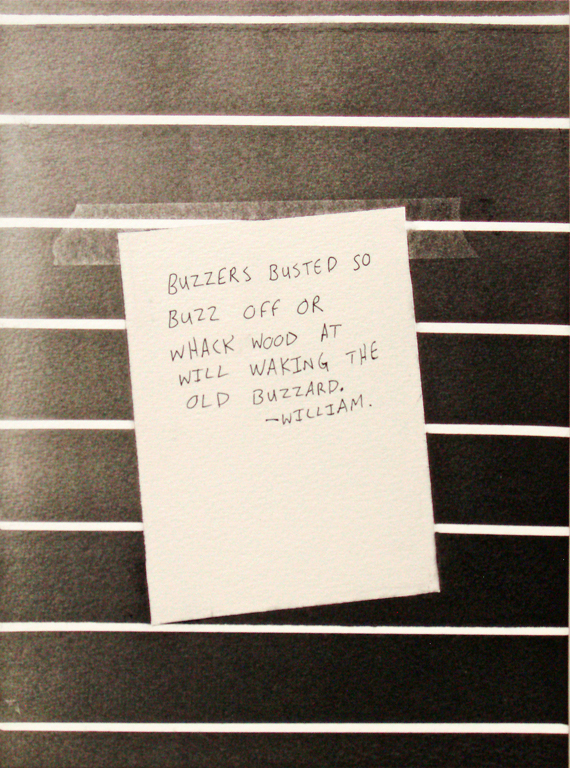 BUZZERS BUSTED SO
BUZZ OFF OR
WHACK WOOD AT
WILL WAKING THE
OLD BUZZARD.
-WILLIAM.